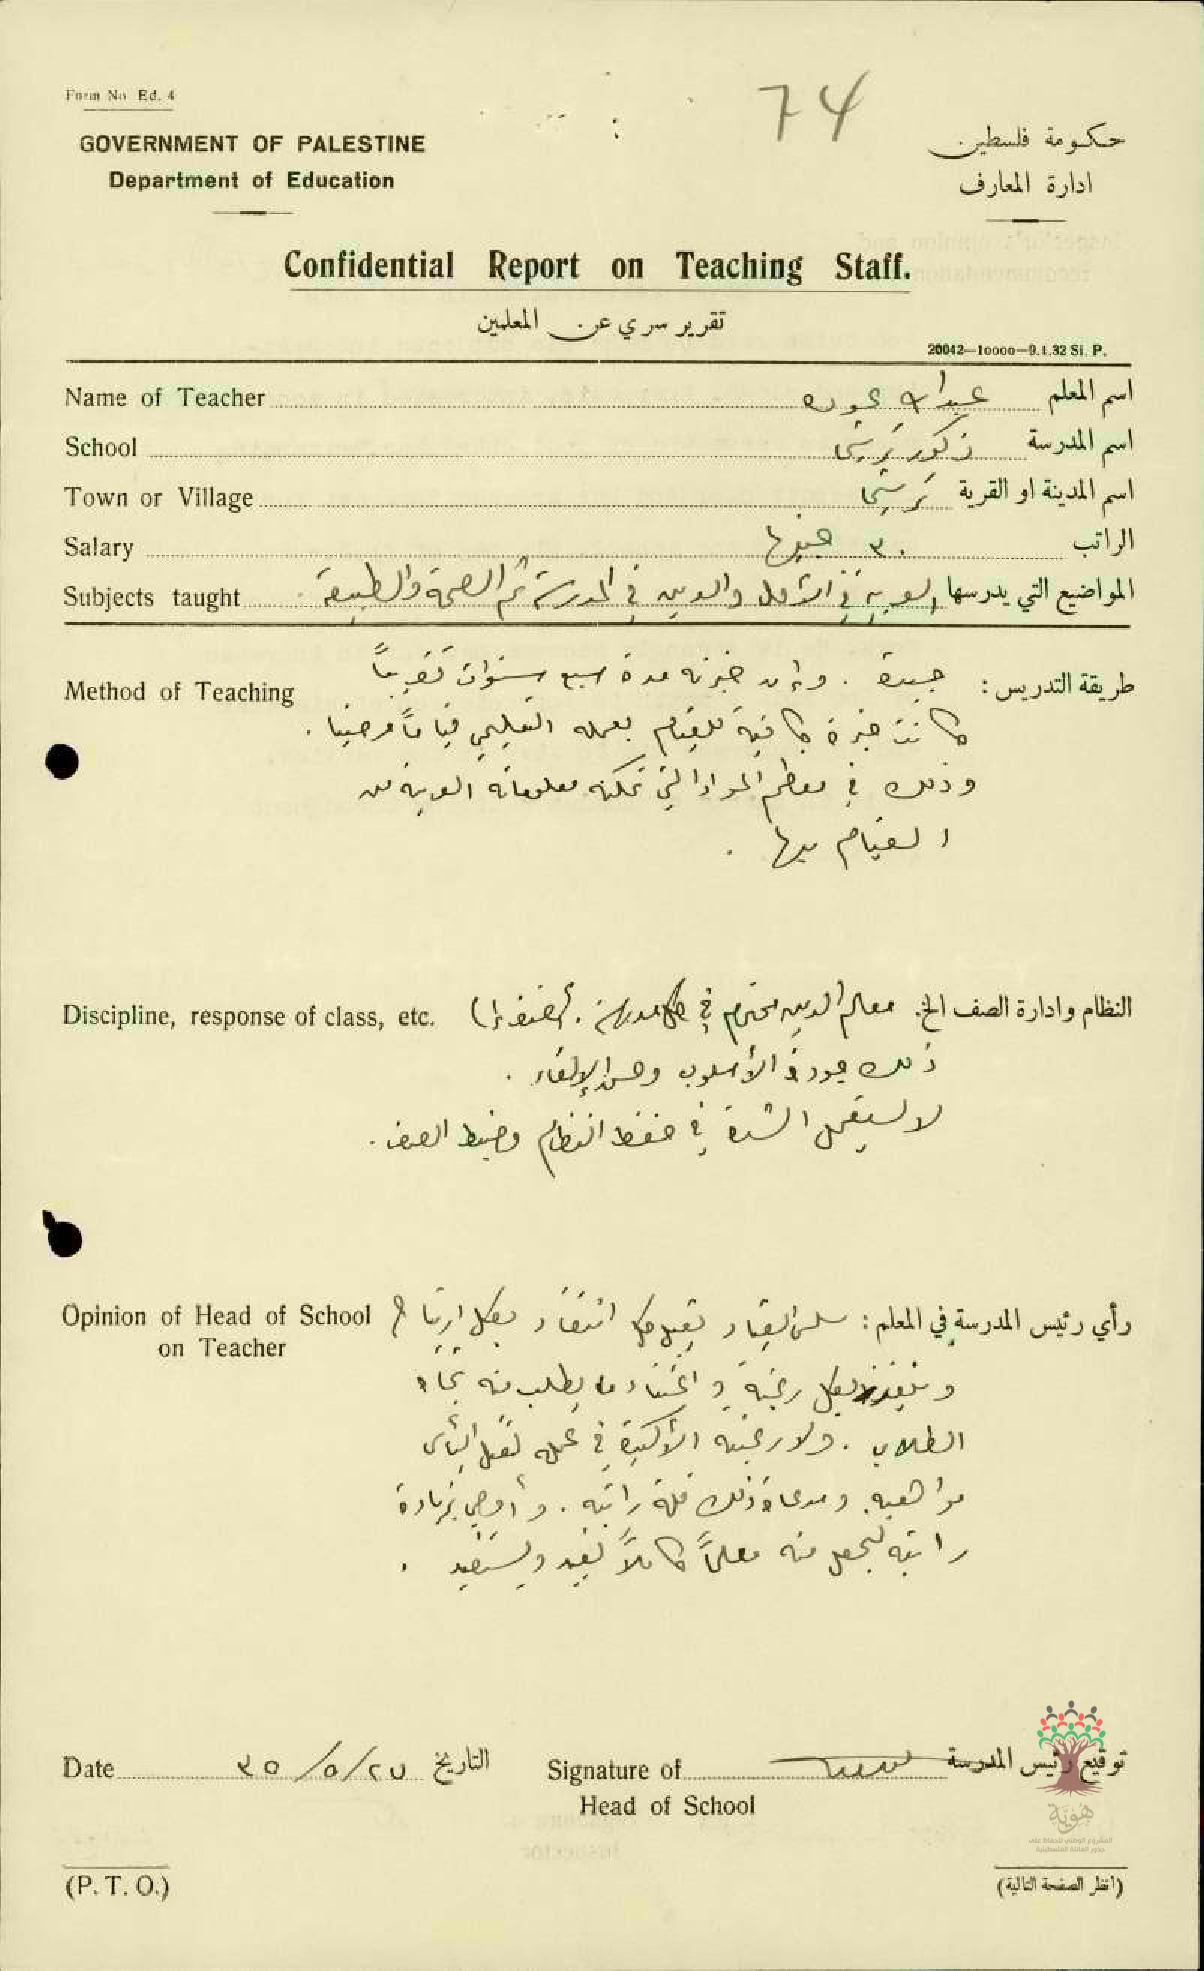 Form No. Ed. 4
74
GOVERNMENT OF PALESTINE
Department of Education
حكومة فلسطين
ادارة المعارف
Confidential Report on Teaching Staff.
تقرير سري عن المعلمين
20042—10000—9.1.32 Si. P.
Name of Teacher عبدالله اسم المعلم
School ذكور ترشيحا اسم المدرسة
Town or Village ترشيحا اسم المدينة او القرية
Salary ٣٠ جنيها الراتب
Subjects taught العربية في الأول والدين في المدرسة ثم الصحة والطبيعة المواضيع التي يدرسها
Method of Teaching طريقة التدريس : جيدة . وان خبرته مدة سبع سنوات تقريباً
كانت خبرة كافية للقيام بعمله التعليمي قياماً مرضيا .
وذلك في معظم المواد التي تمكنه معلوماته العربية من
القيام بها .
Discipline, response of class, etc. النظام وادارة الصف الخ. معلم الدين محترم في كل مدرسة .
ذلك جودة الأسلوب وحسن الإلقاء .
لا يستعمل الشدة في حفظ النظام وضبط الصف .
Opinion of Head of School
on Teacher
رأي رئيس المدرسة في المعلم : سلس القياد يقبل كل انتقاد بكل ارتياح
وينفذ بكل رغبة واعتناء ما يطلب منه تجاه
الطلاب . ولا رغبته الأكيدة في عمله لقتل اليأس
مواهبه . ومدعاة ذلك قلة راتبه . وأوصي بزيادة
راتبه ليجعل منه معلماً كاملاً يفيد ويستفيد .
Date ٢٧/٥/٣٥ التاريخ
Signature of
Head of School
توقيع رئيس المدرسة
هوية
المشروع الوطني للحفاظ على
جذور العائلة الفلسطينية
(P. T. O.)
(انظر الصفحة التالية)